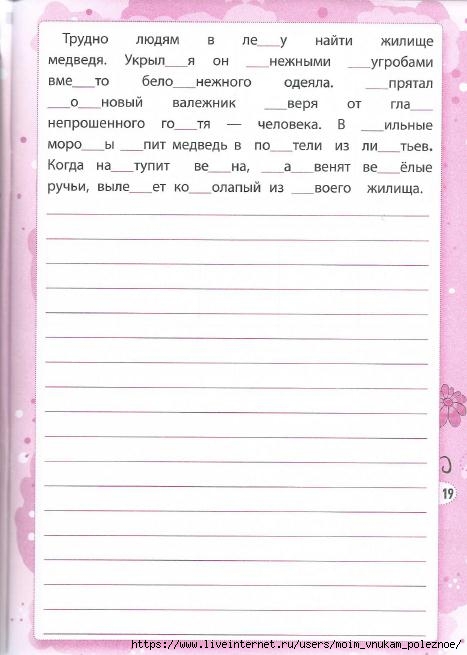 Трудно людям в ле___у найти жилище
медведя. Укрыл___я он ___нежными ___угробами
вме___то бело___нежного одеяла. ___прятал
___о___новый валежник ___веря от гла___
непрошенного го___тя — человека. В ___ильные
моро___ы ___пит медведь в по___тели из ли___тьев.
Когда на___тупит ве___на, ___а___венят ве___ёлые
ручьи, выле___ет ко___олапый из ___воего жилища.
19
https://www.liveinternet.ru/users/moim_vnukam_poleznoe/